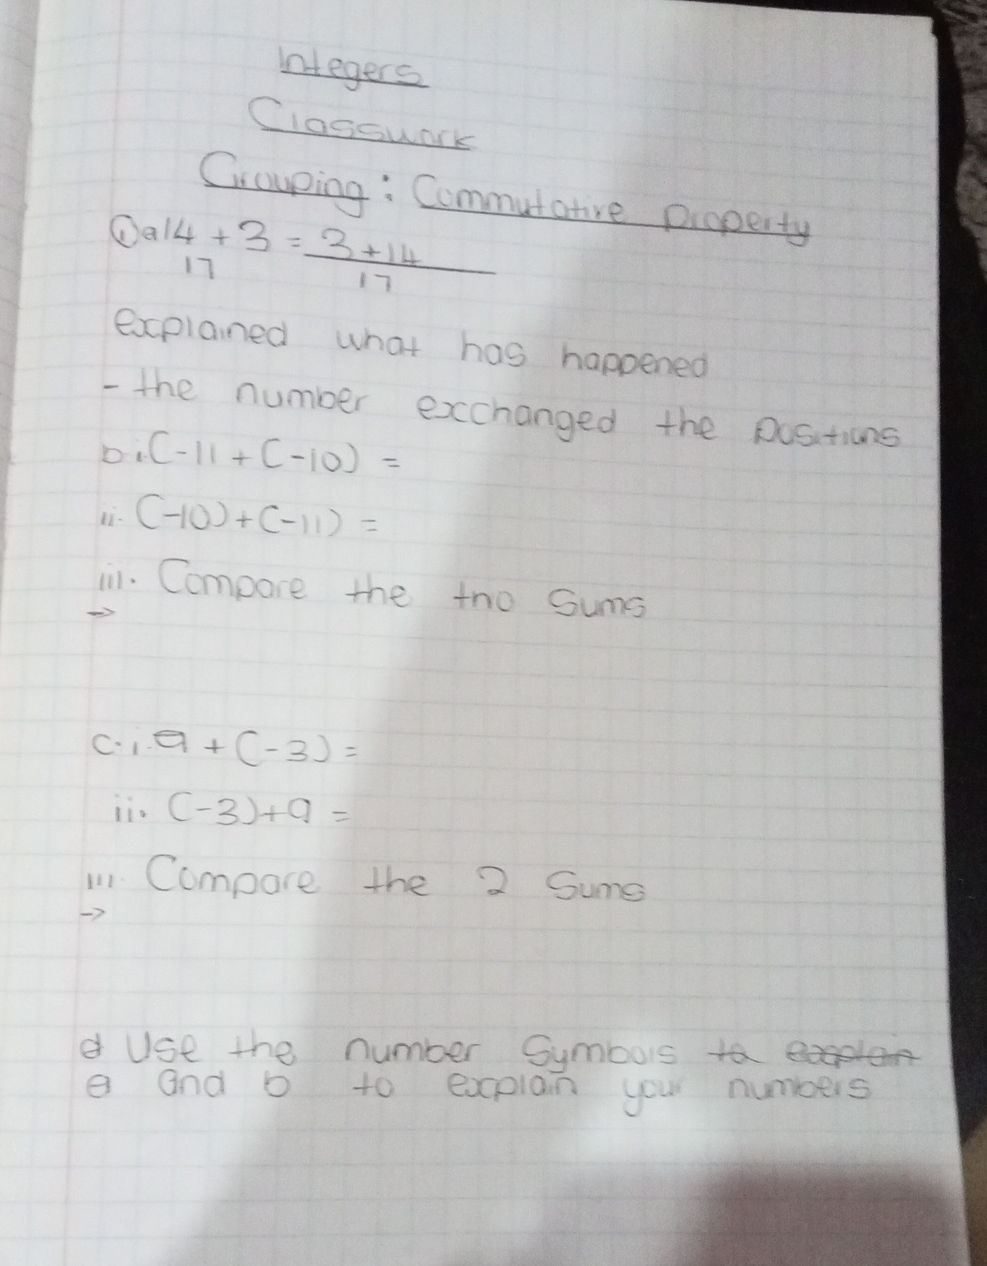 Integers
Classwork
Grouping: Commutative property
① a 14 + 3 = 3 + 14
17 17
explained what has happened
- the number excchanged the positions
b i (-11 + (-10) =
ii. (-10) + (-11) =
iii. Compare the two sums
→
c. i. 9 + (-3) =
ii. (-3) + 9 =
iii. Compare the 2 sums
→
d Use the number symbols to explain
a and b to explain your numbers